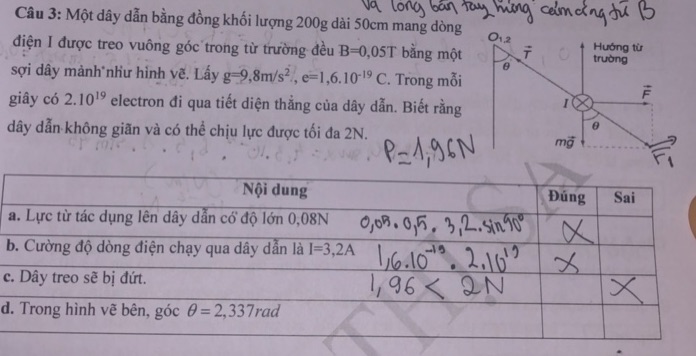 và lòng bàn tay hứng cảm ứng từ B
Câu 3: Một dây dẫn bằng đồng khối lượng 200g dài 50cm mang dòng
điện I được treo vuông góc trong từ trường đều B=0,05T bằng một
sợi dây mảnh như hình vẽ. Lấy g=9,8m/s², e=1,6.10⁻¹⁹ C. Trong mỗi
giây có 2.10¹⁹ electron đi qua tiết diện thẳng của dây dẫn. Biết rằng
dây dẫn không giãn và có thể chịu lực được tối đa 2N.
P=1,96N
O₁,₂
T
θ
Hướng từ
trường
F
I
θ
mg
F₁
Nội dung Đúng Sai
a. Lực từ tác dụng lên dây dẫn có độ lớn 0,08N 0,05.0,5.3,2.sin90° X
b. Cường độ dòng điện chạy qua dây dẫn là I=3,2A 1,6.10⁻¹⁹.2.10¹⁹ X
c. Dây treo sẽ bị đứt. 1,96 < 2N X
d. Trong hình vẽ bên, góc θ = 2,337rad